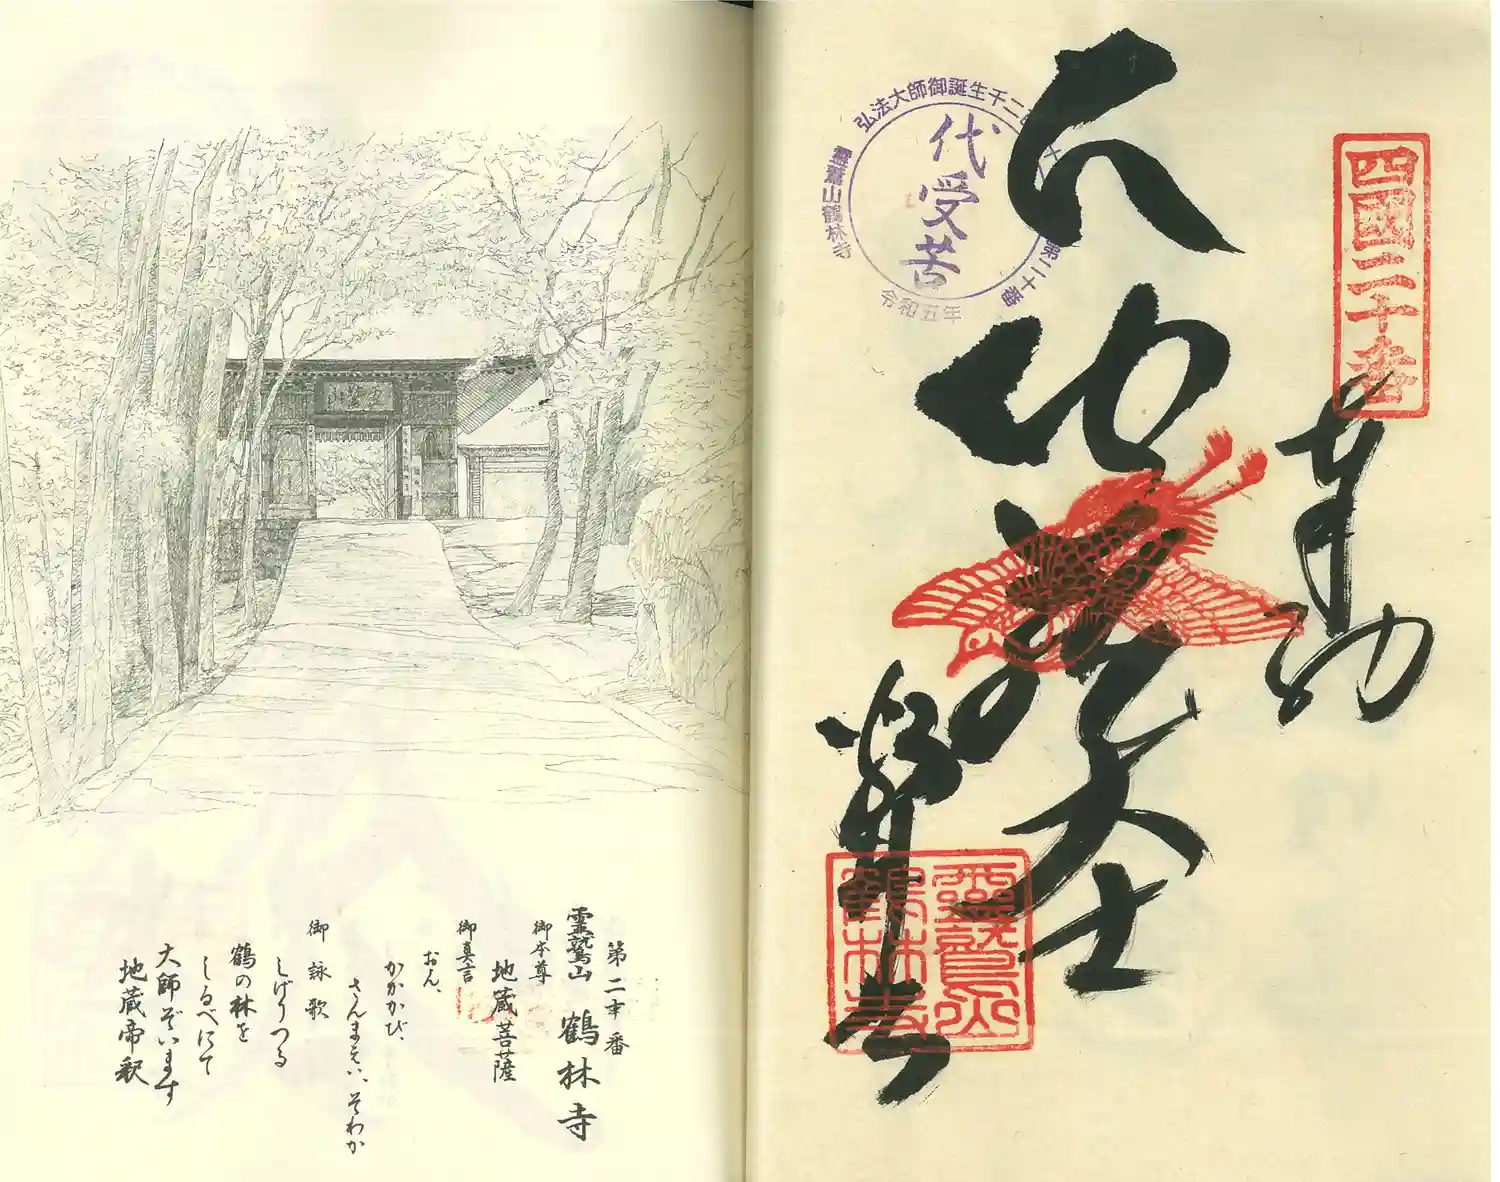 四國二十番
奉納
地蔵大士
鶴林寺
弘法大師御誕生千二
第二十番
代受苦
霊鷲山鶴林寺
令和五年
靈鷲山
鶴林寺
第二十番
霊鷲山 鶴林寺
御本尊
地蔵菩薩
御真言
おん、
かかかび、
さんまえい、そわか
御詠歌
しげりつる
鶴の林を
しるべにて
大師ぞいます
地蔵帝釈